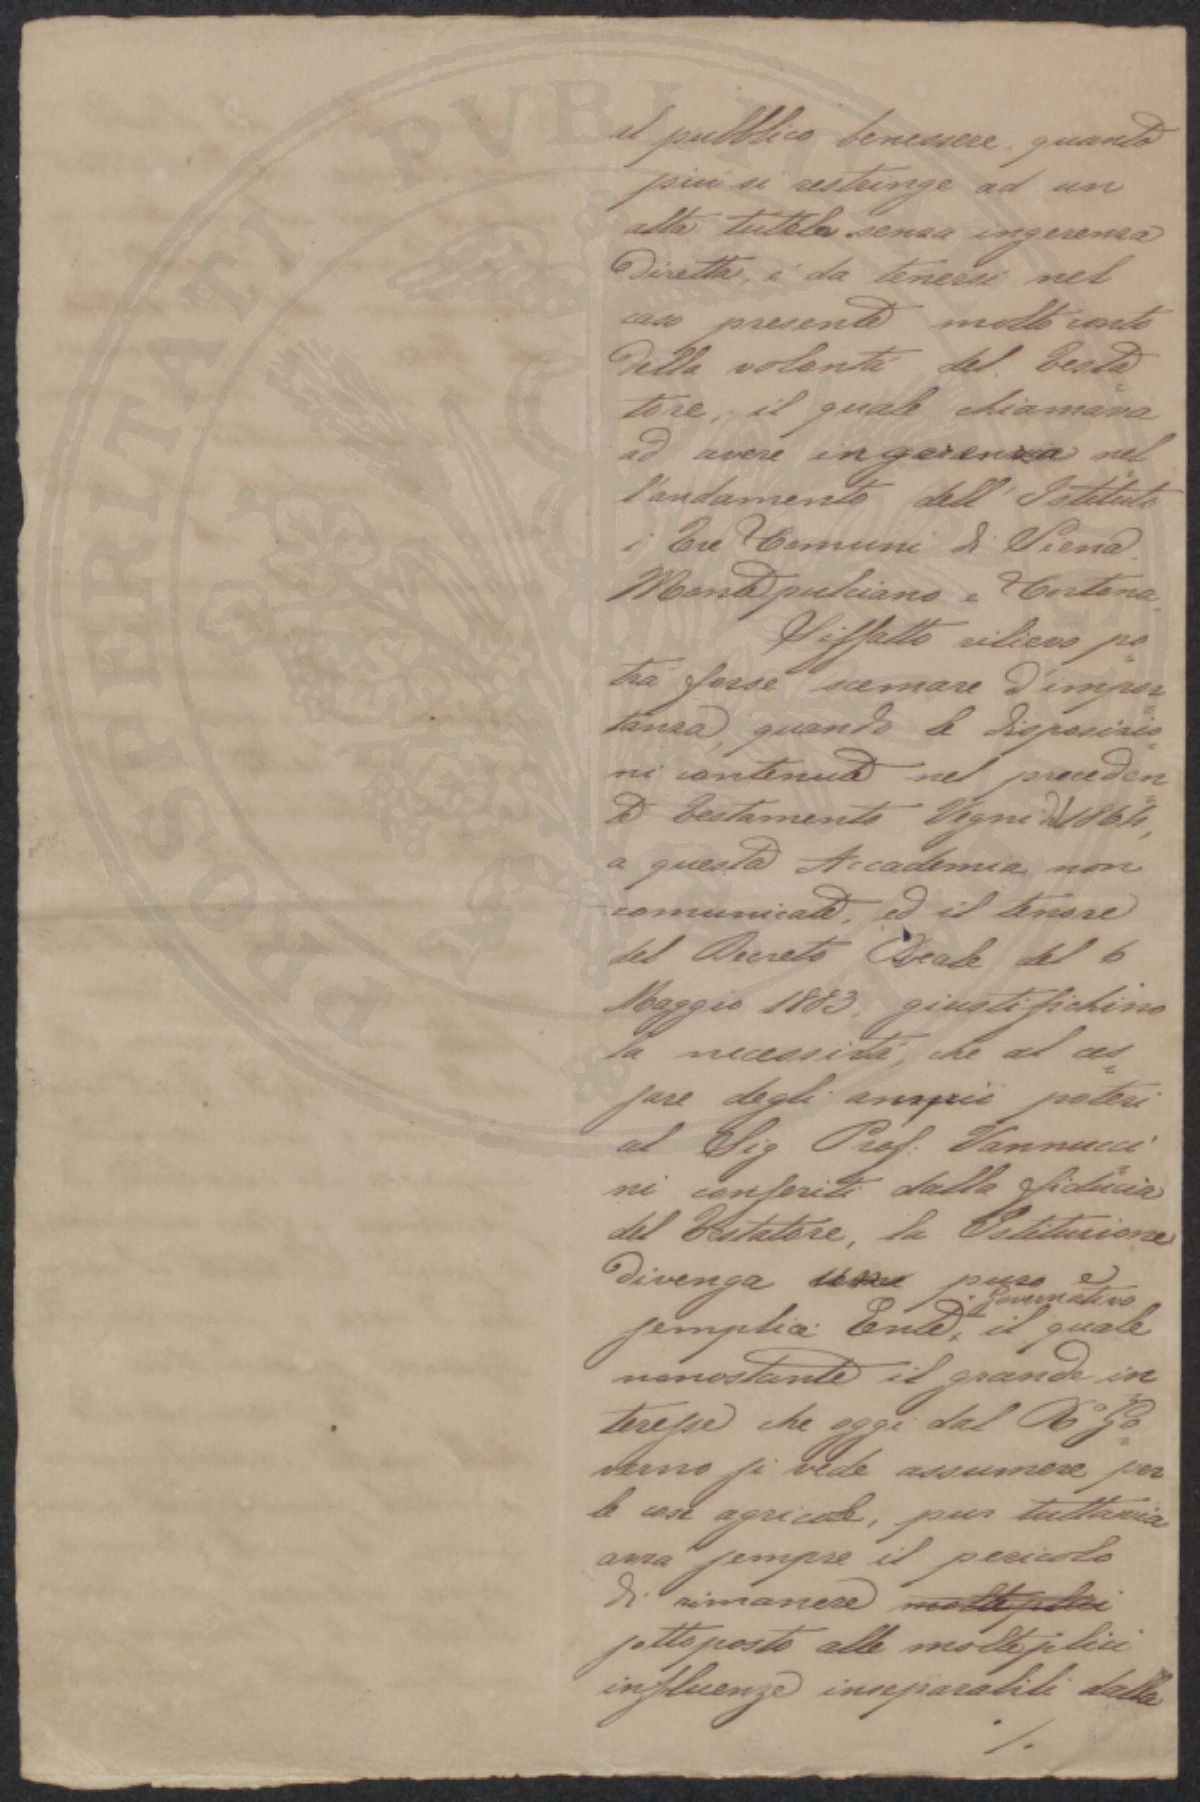 PROSPERITATI PVBLICAE
al pubblico benessere, quanto
più si restringe ad un
alta tutela senza ingerenza
diretta, é da tenersi nel
caso presente molto conto
della volontà del Testa
tore, il quale chiamava
ad avere ingerenza nel
l'andamento dell'Istituto
i Tre Comuni di Siena
Montepulciano e Cortona.
Siffatto rilievo po
trà forse scemare d'impor
tanza, quando le disposizio
ni contenute nel preceden
te Testamento Vegni del 1864,
a questa Accademia non
comunicate, ed il tenore
del Decreto Reale del 6
Maggio 1883, giustifichino
la necessità, che al ces
sare degli ampii poteri
al Sig Prof. Vannucci
ni conferiti dalla fiducia
del Testatore, la Istituzione
divenga puro e
semplice Ente, il quale
governativo
nonostante il grande in
teresse che oggi dal R.o Go
verno si vede assumere per
le cose agricole, pur tuttavia
avrà sempre il pericolo
di rimanere molteplici
sottoposto alle molteplici
influenze inseparabili dalla
./.